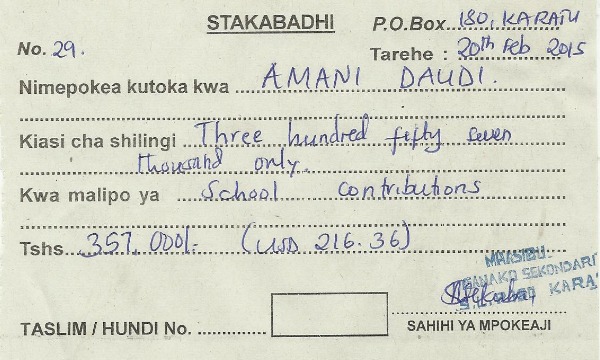 STAKABADHI
P.O.Box 180, KARATU
No. 29.
Tarehe : 20th Feb 2015
Nimepokea kutoka kwa AMANI DAUDI.
Kiasi cha shilingi Three hundred fifty seven
thousand only.
Kwa malipo ya School contributions
Tshs 357,000/- (USD 216.36)
MHASIBU
GANAKO SEKONDARI
KARA
TASLIM / HUNDI No.
SAHIHI YA MPOKEAJI